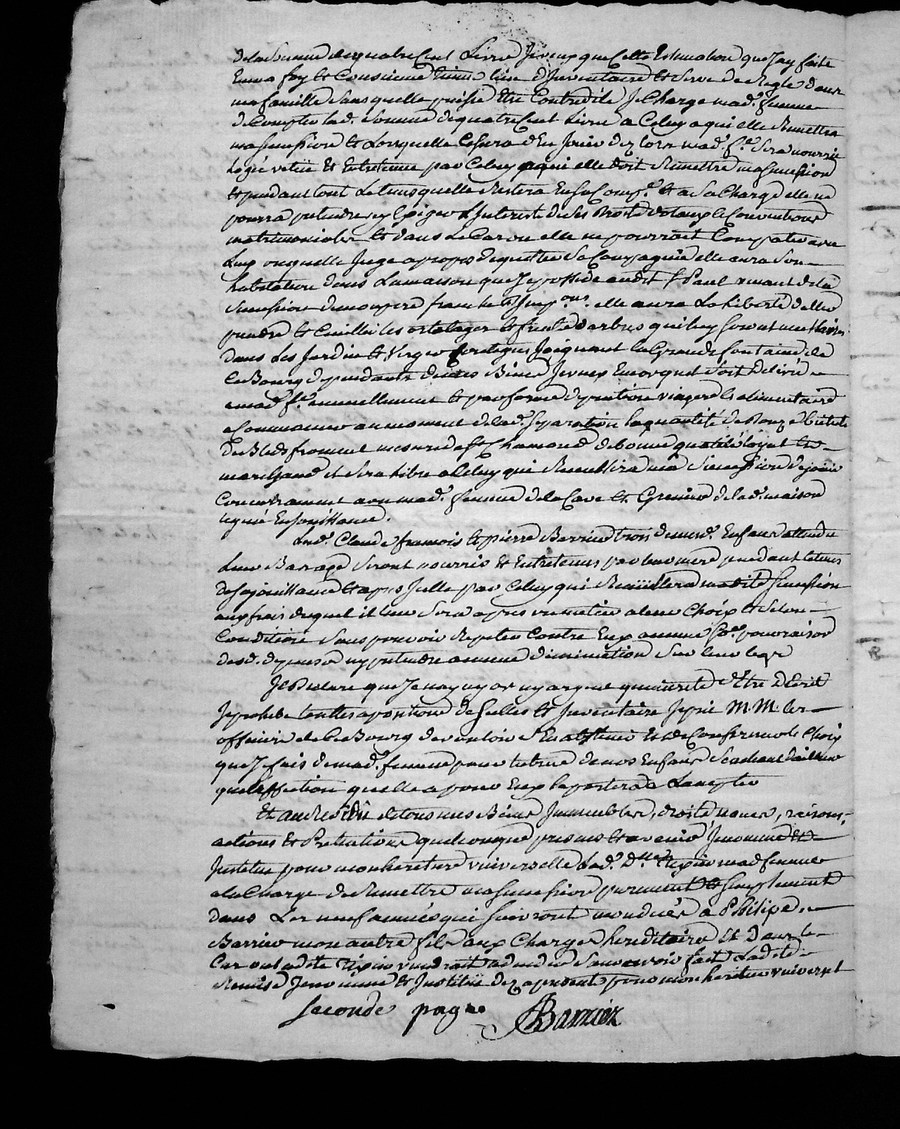 de la Somme de quatre Cent Livre Je veux que Cette Estimation que J'ay faite
En ma foy Et Conscience tienne lieu d'Inventaire Et Serve de Regle dans
ma famille Sans quelle puisse Etre Contredite Je Charge mad.e femme
de Compter lad. Somme de quatre Cent Livre a Celuy a qui elle Remettra
ma Succession Et Lorsquelle Cessera d'En Jouir dez lors mad.e f.e Sera nourrie
logée vetüe Et Entretenue par Celuy a qui elle doit Remettre ma Succession
Et pendant tout Le tems quelle Restera En Sa Comp.e Et a Sa Charge elle ne
pourra pretendre ny Exiger d'Interest de Ses Droits dotaux Et Conventions
matrimoniales Et dans Le Cas ou elle ne pourroit Compatir avec
Luy ou quelle Juge a propos de quitter Sa Compagnie elle aura Son
habitation dans La maison que Je possede audit S.t Paul venant de la
Succession de mon pere franche d'Imp.ons elle aura La liberté d'aller
prendre Et Cueillir les ortolages Et fruits d'arbres qui luy Seront necessaires
dans Les Jardin Et Verger Joignant la Grande fontaine de
Ce Bourg dependants de mes Biens Je veux Encor quil Soit delivré
a mad.e f.e annuellement Et par forme de pention viagere Et alimentaire
a Commancer au moment de lad. Separation la quantité de Bichets
de Bled froment mesure de S.t Chamond de bonne qualité loyal Et
marchand Et Sera libre a Celuy qui Recueillira ma Succession de Jouir
Concurrament avec mad.e femme de la Cave Et Grenier de lad. maison
leguée En Jouissance.
Lesd. Claude francois Et pierre Barrier trois de mesd. Enfans attendu
Leur Bas age Seront nourris Et Entretenus par leur mere pendant le tems
de Sa Jouissance Et apres Icelle par Celuy qui Recueillera madite Succession
aux frais duquel il leur Sera apris un metier a leur Choix Et Selon
Condition Sans pouvoir Repeter Contre Eux aucune Ch.e pour raison
desd. depenses ny pretendre aucune diminution Sur leur legs
Je Declare que Je n'ay ny or ny argent qui merite d'Etre decrit
Je prohibe toutes apositions de Scelles Et Inventaire Je prie M.M. les
officiers de Ce Bourg de vouloir S'En abstenir Et de Confirmer le Choix
que Je fais de mad.e femme pour tutrice de nos Enfans Sachant d'ailleurs
que l'affection quelle a pour Eux la portera a L'accepter
Et au Residu de tous mes Biens Immeubles, droits noms, raisons,
actions Et Pretentions quelconques presens Et avenir Je nomme Et
Institue pour mon heritiere universelle lad.e D.lle Tixier mad. femme
a la Charge de Remettre ma Succession purement Et Simplement
dans Les neuf années qui Suivront mon deces a Philipe
Barrier mon autre fils aux Charges hereditaires Et Dans le
Cas ou ladite Tixier viendroit a deceder Sans avoir fait Ladite
Remise Je nomme Et Institue dez apresent pour mon heritier universel
Seconde page Barrier